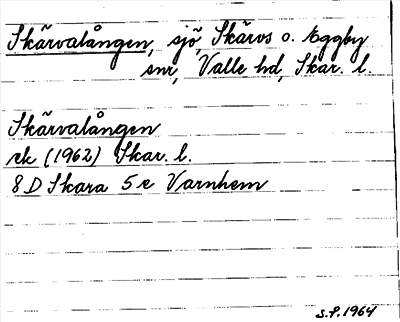 Skärvalången, sjö, Skärvs o. Eggby
snr, Valle hd, Skar. l.
Skärvalången
ek (1962) Skar. l.
8 D Skara 5 e Varnhem
S.P. 1964